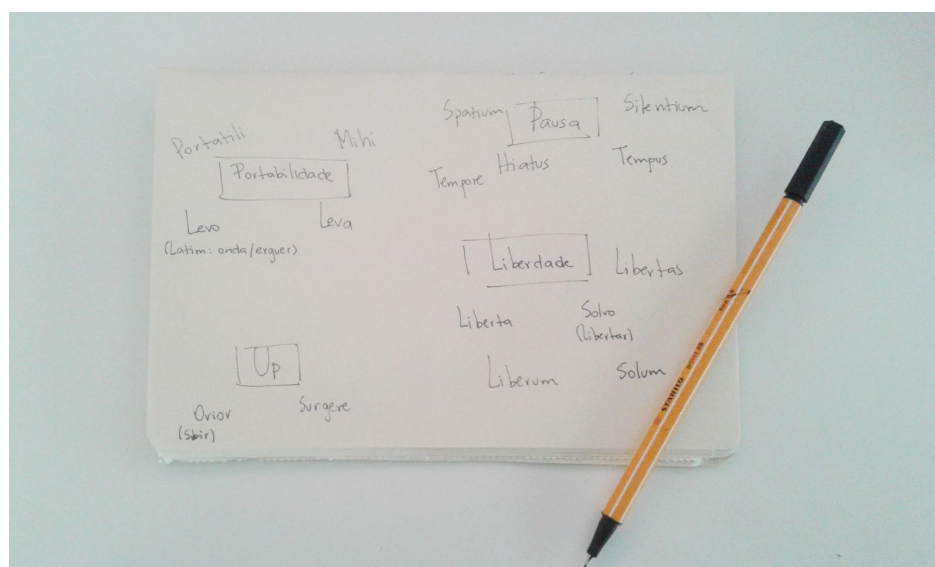 Portatili
Mihi
Portabilidade
Levo
Leva
(Latim: onda/erguer)
Up
Orior
Surgere
(Subir)
Spatium
Pausa
Silentium
Tempore
Hiatus
Tempus
Liberdade
Libertas
Liberta
Solvo
(Libertar)
Liberum
Solum
STABILO